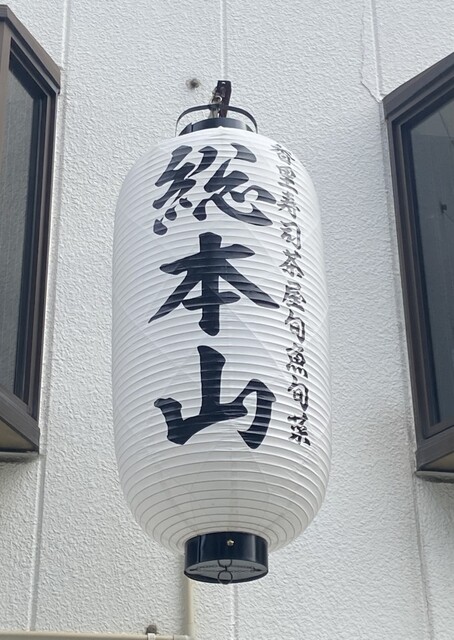 都里寿司茶屋旬魚旬菜
総本山